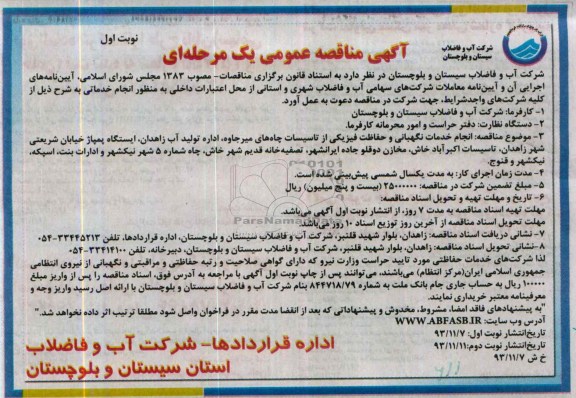 نوبت اول
شرکت آب و فاضلاب
سیستان و بلوچستان
آگهی مناقصه عمومی یک مرحله‌ای
شرکت آب و فاضلاب سیستان و بلوچستان در نظر دارد به استناد قانون برگزاری مناقصات- مصوب ۱۳۸۳ مجلس شورای اسلامی، آیین‌نامه‌های
اجرایی آن و آیین‌نامه معاملات شرکت‌های سهامی آب و فاضلاب شهری و استانی از محل اعتبارات داخلی به منظور انجام خدماتی به شرح ذیل از
کلیه شرکت‌های واجدشرایط، جهت شرکت در مناقصه دعوت به عمل آورد.
۱- کارفرما: شرکت آب و فاضلاب سیستان و بلوچستان
۲- دستگاه نظارت: دفتر حراست و امور محرمانه کارفرما.
۳- موضوع مناقصه: انجام خدمات نگهبانی و حفاظت فیزیکی از تاسیسات چاه‌های میرجاوه، اداره تولید آب زاهدان، ایستگاه پمپاژ خیابان شریعتی
شهر زاهدان، تاسیسات اکبرآباد خاش، مخازن دوقلو جاده ایرانشهر، تصفیه‌خانه قدیم شهر خاش، چاه شماره ۵ شهر نیکشهر و ادارات بنت، اسپکه،
نیکشهر و فنوج.
۴- مدت زمان اجرای کار: به مدت یکسال شمسی پیش‌بینی شده است.
۵- مبلغ تضمین شرکت در مناقصه: ۲۵۰۰۰۰۰۰ (بیست و پنج میلیون) ریال
۶- تاریخ و مهلت تهیه و تحویل اسناد مناقصه:
مهلت تهیه اسناد مناقصه به مدت ۷ روز، از انتشار نوبت اول آگهی می‌باشد.
مهلت تحویل اسناد مناقصه از آخرین روز توزیع اسناد ۱۰ روز می‌باشد.
۷- نشانی دریافت اسناد مناقصه: زاهدان، بلوار شهید قلنبر، شرکت آب و فاضلاب سیستان و بلوچستان، اداره قراردادها، تلفن ۳۳۴۴۵۲۱۳-۰۵۴
۸- نشانی تحویل اسناد مناقصه: زاهدان، بلوار شهید قلنبر، شرکت آب و فاضلاب سیستان و بلوچستان، دبیرخانه، تلفن ۳۳۴۱۴۱۰۰-۰۵۴
لذا شرکت‌های خدمات حفاظتی مورد تایید حراست وزارت نیرو که دارای گواهی صلاحیت و رتبه حفاظتی و مراقبتی و نگهبانی از نیروی انتظامی
جمهوری اسلامی ایران(مرکز انتظام) می‌باشند، می‌توانند پس از چاپ نوبت اول آگهی با مراجعه به آدرس فوق، اسناد مناقصه را پس از واریز مبلغ
۱۰۰۰۰۰ ریال به حساب جاری جام بانک ملت به شماره ۸۴۴۷۱۸/۷۹ بنام شرکت آب و فاضلاب سیستان و بلوچستان با ارائه اصل رسید واریز وجه و
معرفینامه معتبر خریداری نمایند.
"به پیشنهادهای فاقد امضا، مشروط، مخدوش و پیشنهاداتی که بعد از انقضا مدت مقرر در فراخوان واصل شود مطلقا ترتیب اثر داده نخواهد شد."
آدرس وب سایت: WWW.ABFASB.IR
تاریخ‌انتشار نوبت اول: ۹۳/۱۱/۷
تاریخ‌انتشار نوبت دوم: ۹۳/۱۱/۱۱
خ ش ۹۳/۱۱/۷
اداره قراردادها- شرکت آب و فاضلاب
استان سیستان و بلوچستان